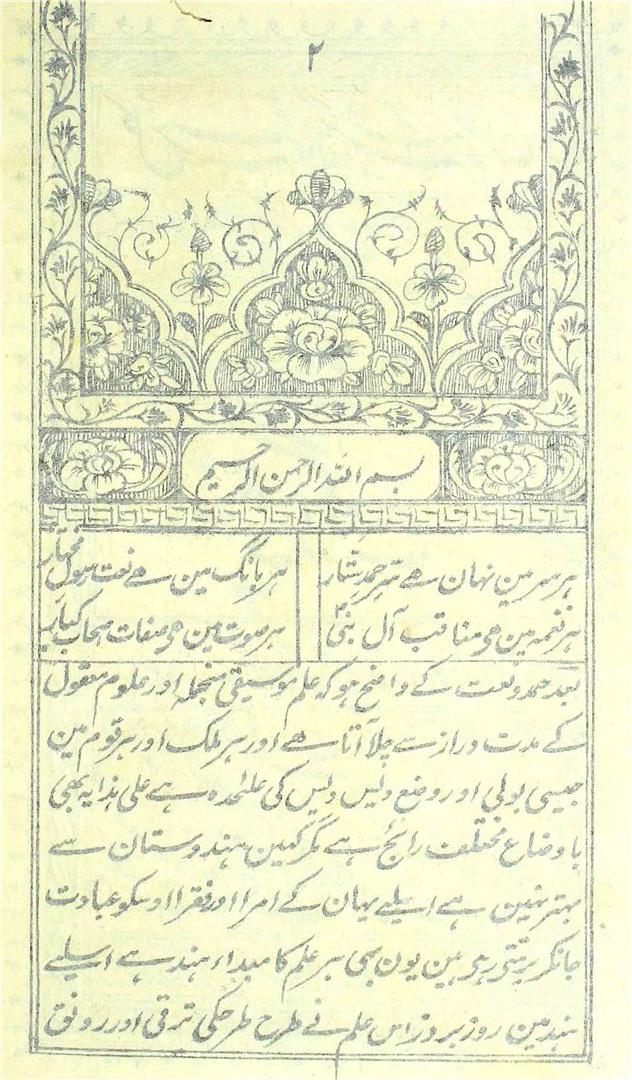 ۲
بسم الله الرحمن الرحیم
ہر سر مین نہان ہے سر حمد ستار ہر بانگ مین ہے نعت رسول مختار
ہر نغمہ مین ہی مناقب آل نبی ہر صوت مین ہی صفات صحاب کبار
بعد حمد و نعت کے واضح ہو کہ علم موسیقی منجملہ اور علوم معقول
کے مدت دراز سے چلا آتا ہے اور ہر ملک اور ہر قوم مین
جیسی بولی اور وضع دیس دیس کی علٰحدہ ہے علی ہذا یہ بھی
باوضاع مختلف رائج ہے مگر کہین ہندوستان سے
بہتر نہین ہے اسیلیے یہان کے امرا اور فقرا اوسکو عبادت
جانکر برتتی رہی ہین یون بھی ہر علم کا مبداء ہند ہے اسیلیے
ہند مین روز بروز اس علم نے طرح طرحکی ترقی اور رونق